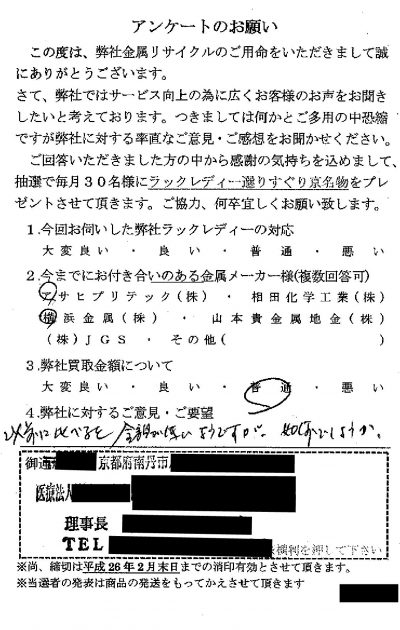 アンケートのお願い
この度は、弊社金属リサイクルのご用命をいただきまして誠
にありがとうございます。
さて、弊社ではサービス向上の為に広くお客様のお声をお聞き
したいと考えております。つきましては何かとご多用の中恐縮
ですが弊社に対する率直なご意見・ご感想をお聞かせください。
ご回答いただきました方の中から感謝の気持ちを込めまして、
抽選で毎月30名様にラックレディー選りすぐり京名物をプレ
ゼントさせて頂きます。ご協力、何卒宜しくお願い致します。
1.今回お伺いした弊社ラックレディーの対応
大変良い ・ 良い ・ 普通 ・ 悪い
2.今までにお付き合いのある金属メーカー様(複数回答可)
アサヒプリテック(株) ・ 相田化学工業(株)
横浜金属(株) ・ 山本貴金属地金(株)
(株)JGS ・ その他( )
3.弊社買取金額について
大変良い ・ 良い ・ 普通 ・ 悪い
4.弊社に対するご意見・ご要望
以前に比べると 金額が低いようですが、如何でしょうか。
御 京都府南丹市
医療法人
理事長
TEL
を押して下さい
※尚、締切は平成26年2月末日までの消印有効とさせて頂きます。
※当選者の発表は商品の発送をもってかえさせて頂きます